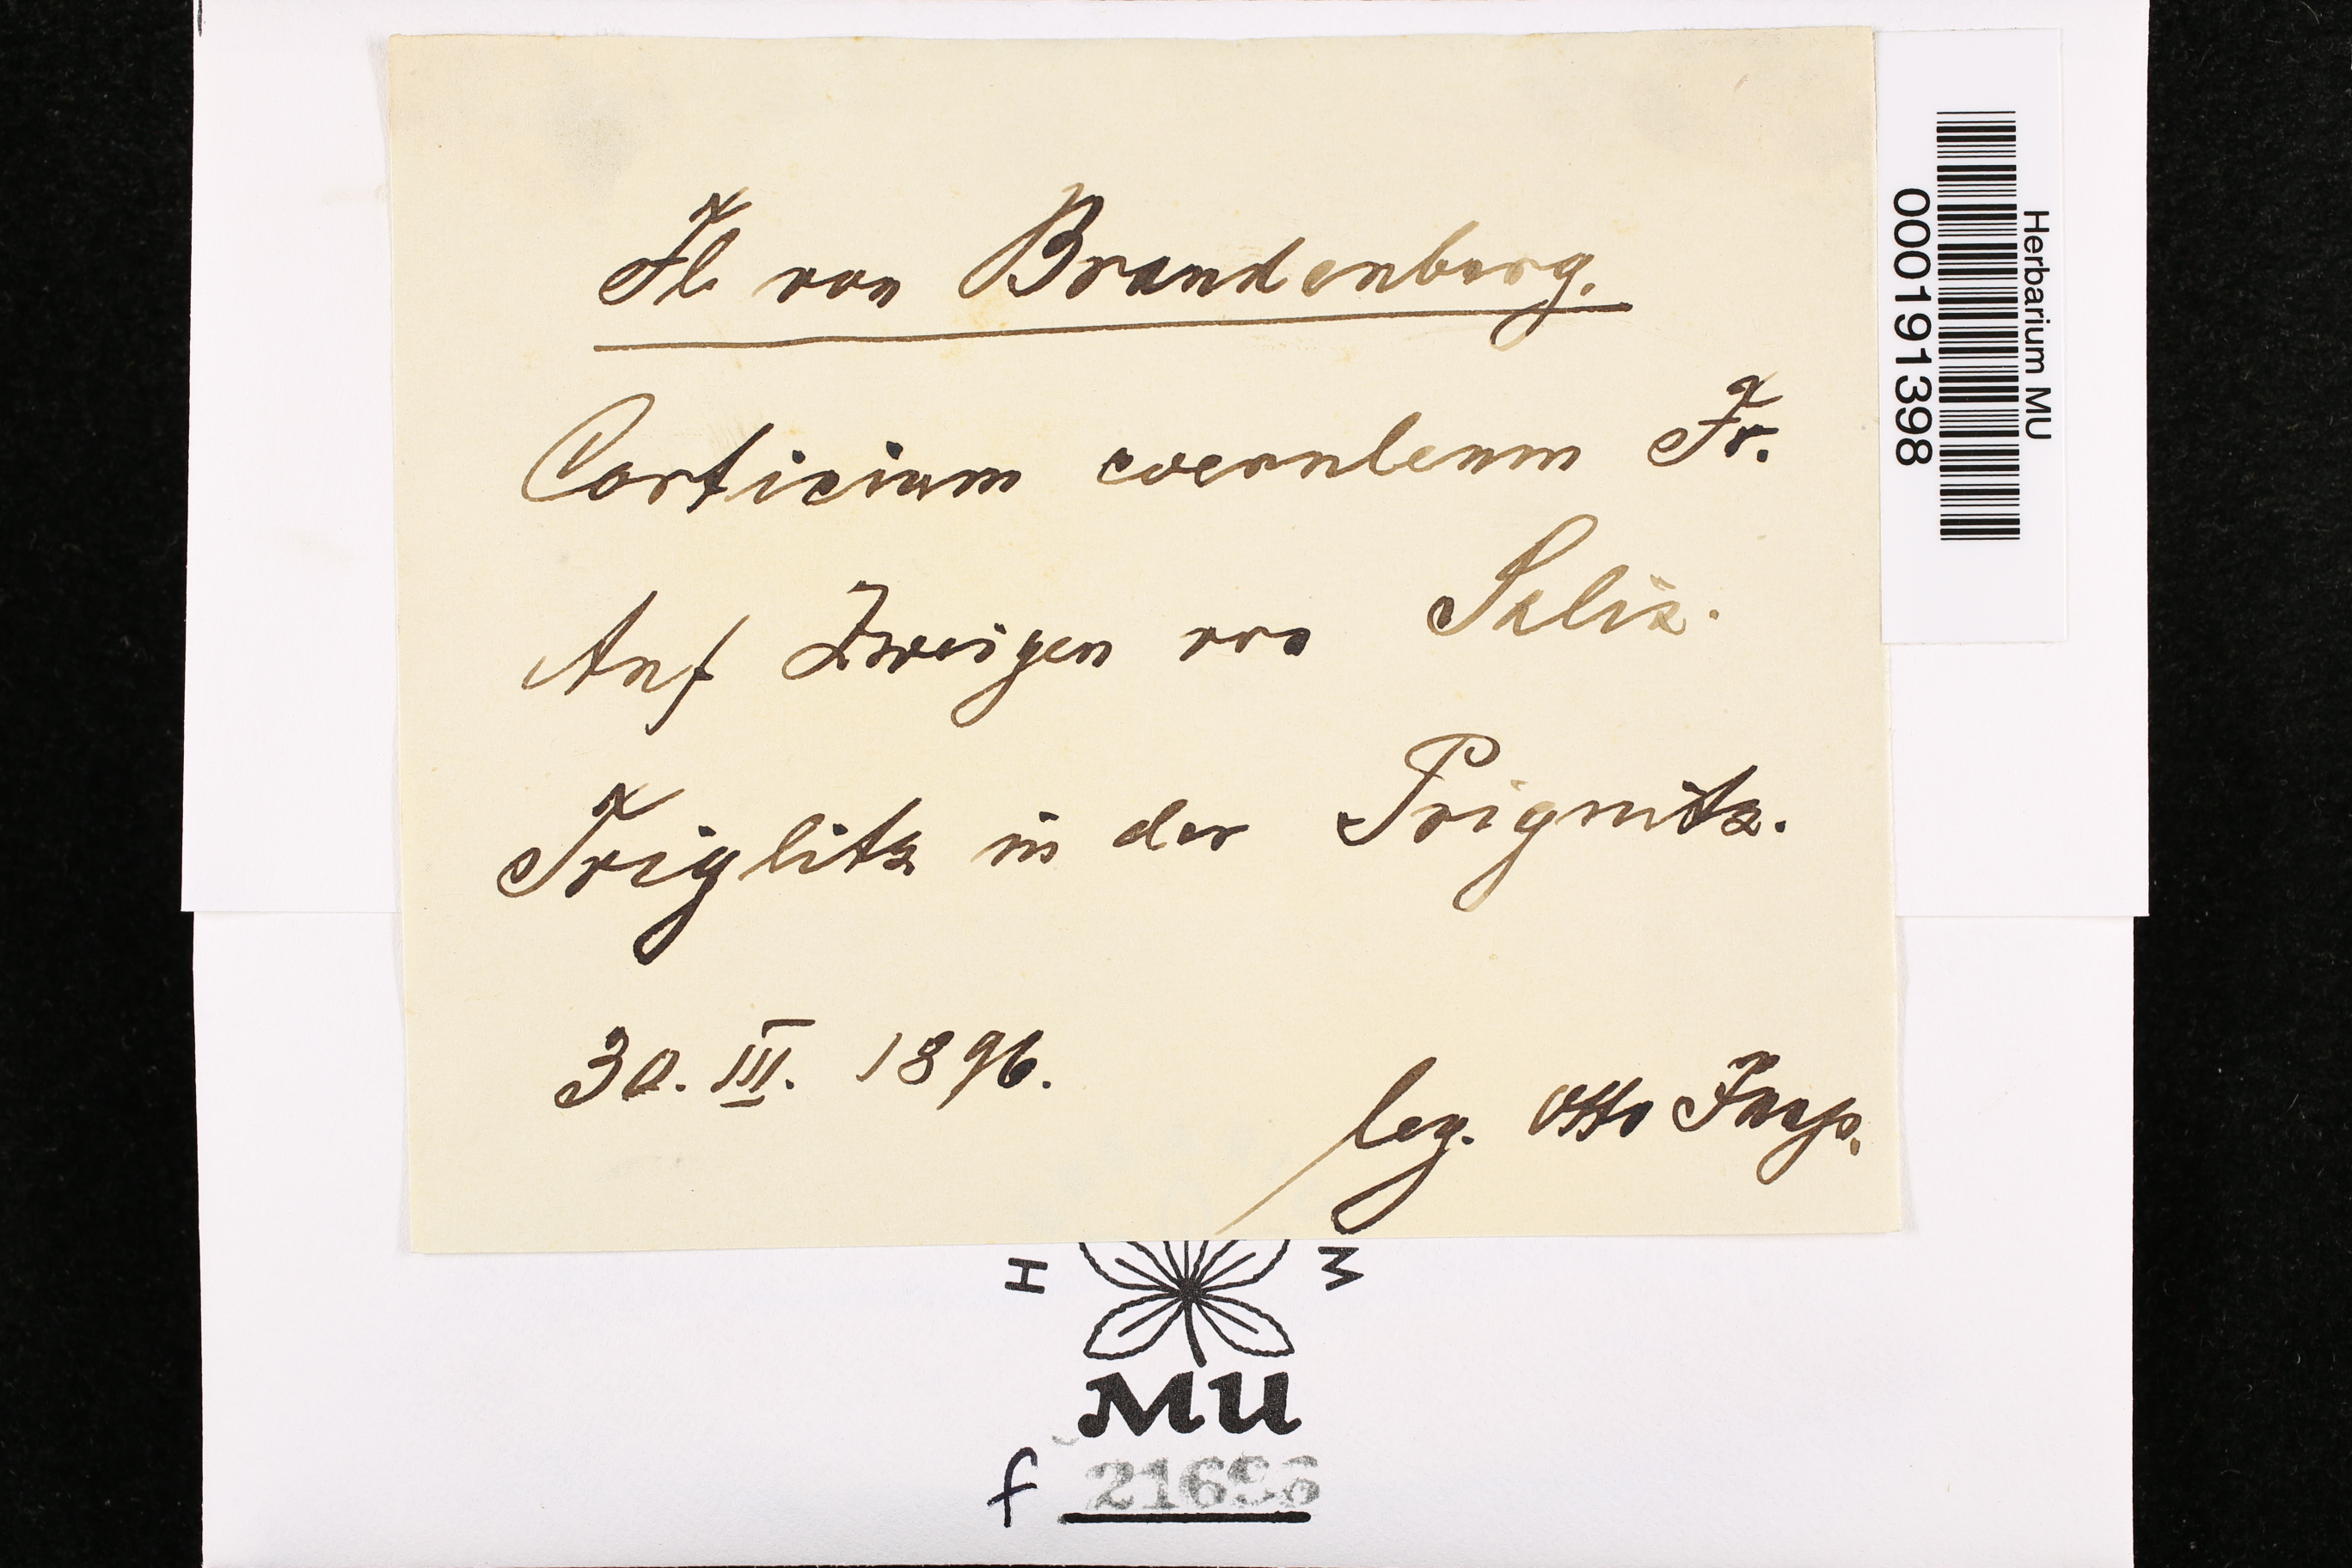 Fl. von Brandenburg.
Corticium coeruleum Fr.
Auf Zweigen von Salix.
Triglitz in der Prignitz.
30. III. 1896.
leg. Otto Jaap.
Herbarium MU
000191398
H M
MU
f